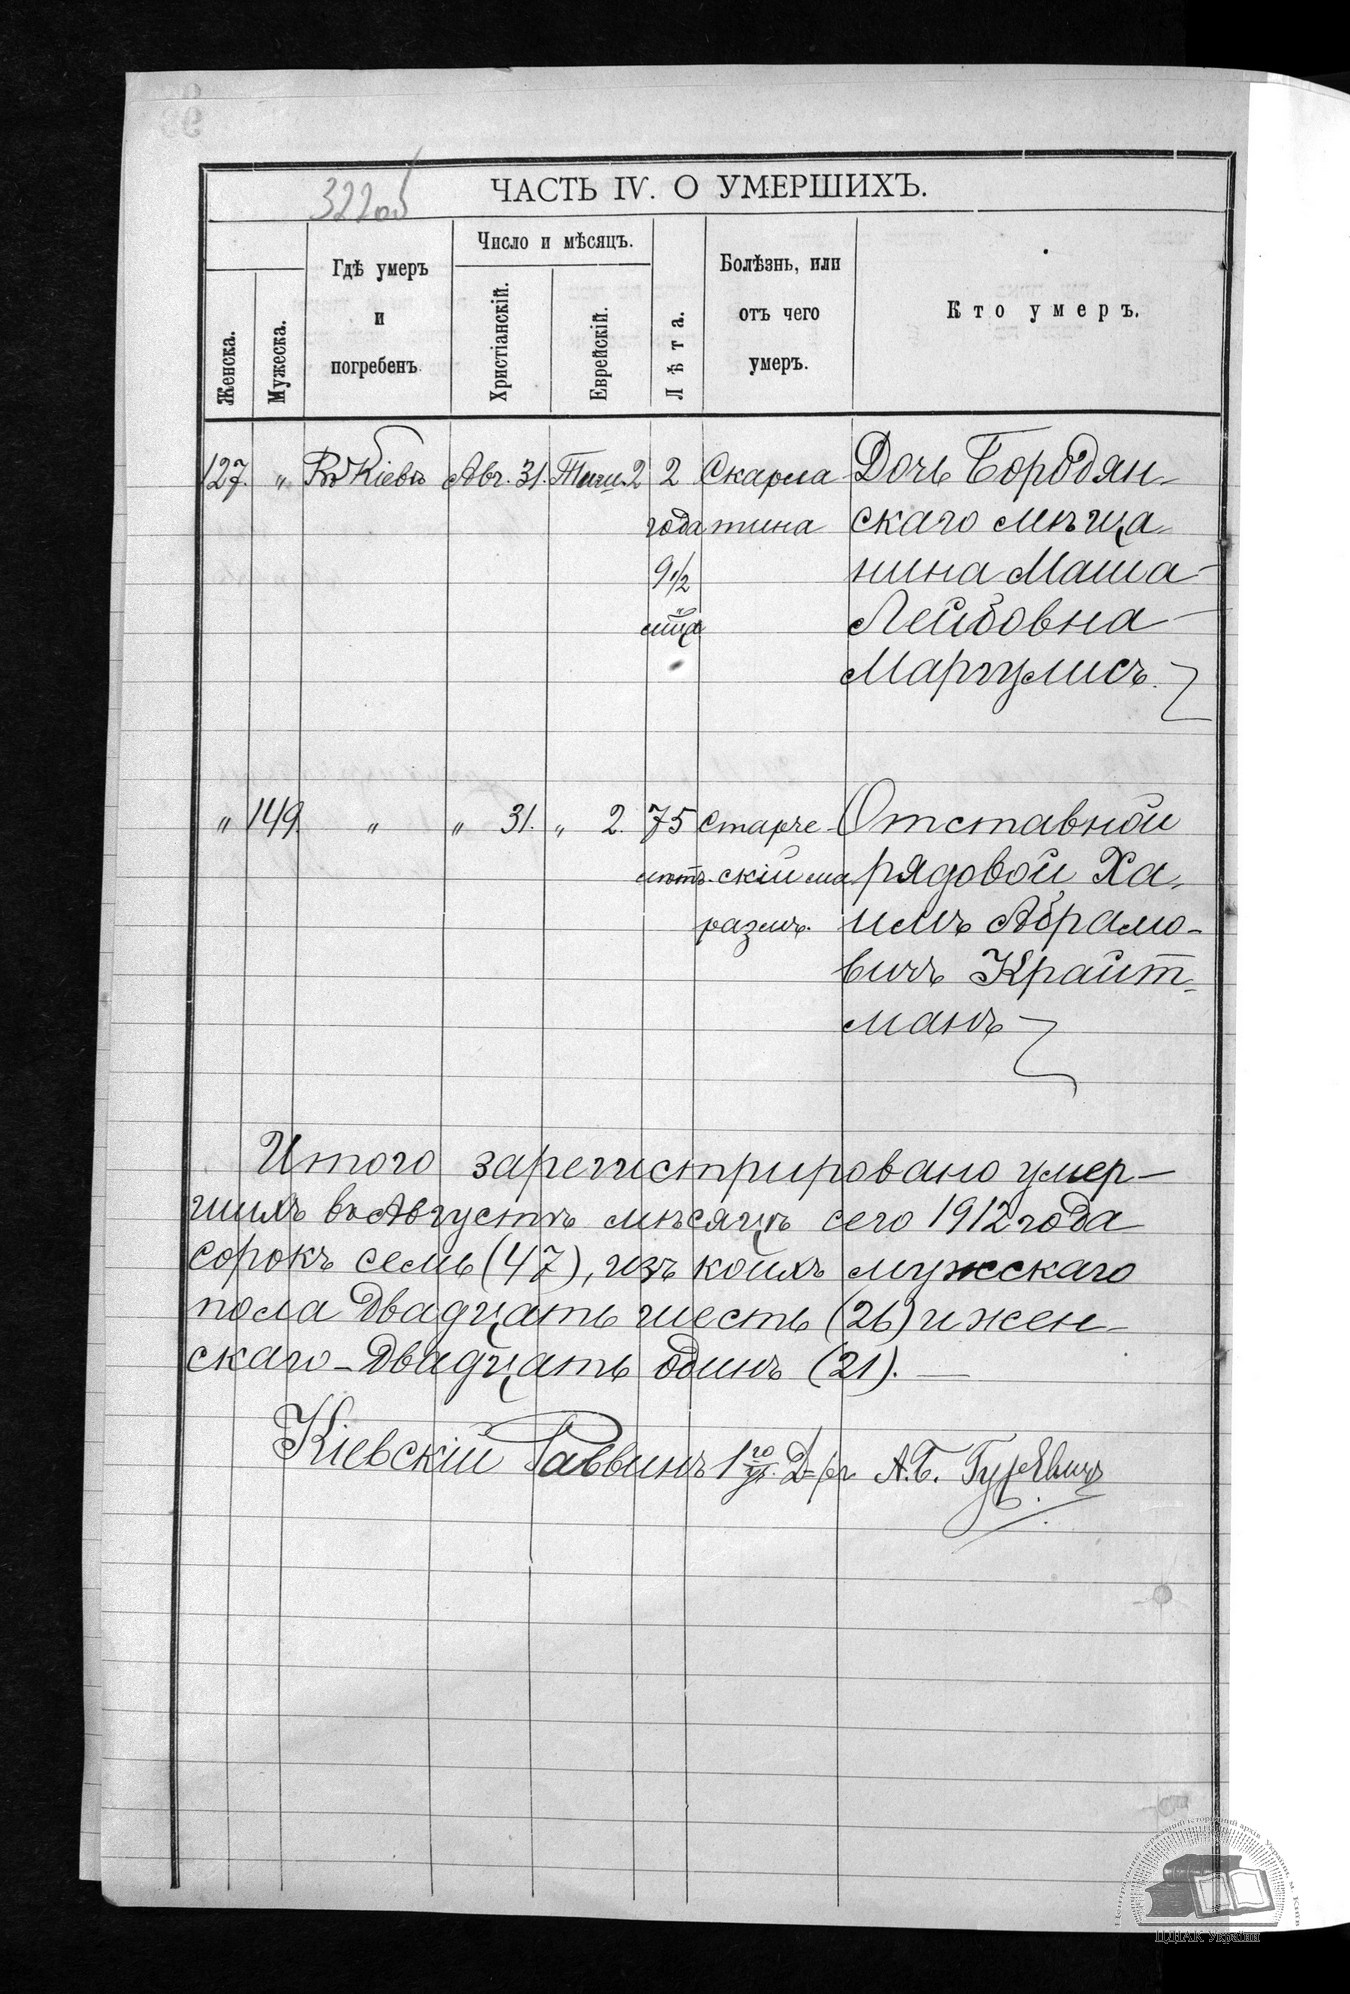 322об
ЧАСТЬ IV. О УМЕРШИХЪ.
Женска.
Мужеска.
Гдѣ умеръ
и
погребенъ
Число и мѣсяцъ.
Христіанскій.
Еврейскій.
Лѣта.
Болѣзнь, или
отъ чего
умеръ.
Кто умеръ.
127. " Въ Кіевѣ Авг. 31. Тиш. 2 2 Скарла Дочь Бородян-
года тина скаго мѣща-
9 1/2 нина Маша
мѣц Лейбовна
Маргулисъ.
" 149. " " 31. " 2. 75 Старче- Отставной
лѣтъ. скій ма рядовой Ха-
размъ. имъ Абрамо-
вичъ Крайт-
манъ
Итого зарегистрировано умер-
шихъ въ Августѣ мѣсяцѣ сего 1912 года
сорокъ семь (47), изъ коихъ мужскаго
пола двадцать шесть (26) и жен-
скаго - двадцать одинъ (21). —
Кіевскій Раввинъ 1го уч. Д-ръ А.Б. Гуревичъ
Центральний державний історичний архів України, м. Київ
ЦДІАК України